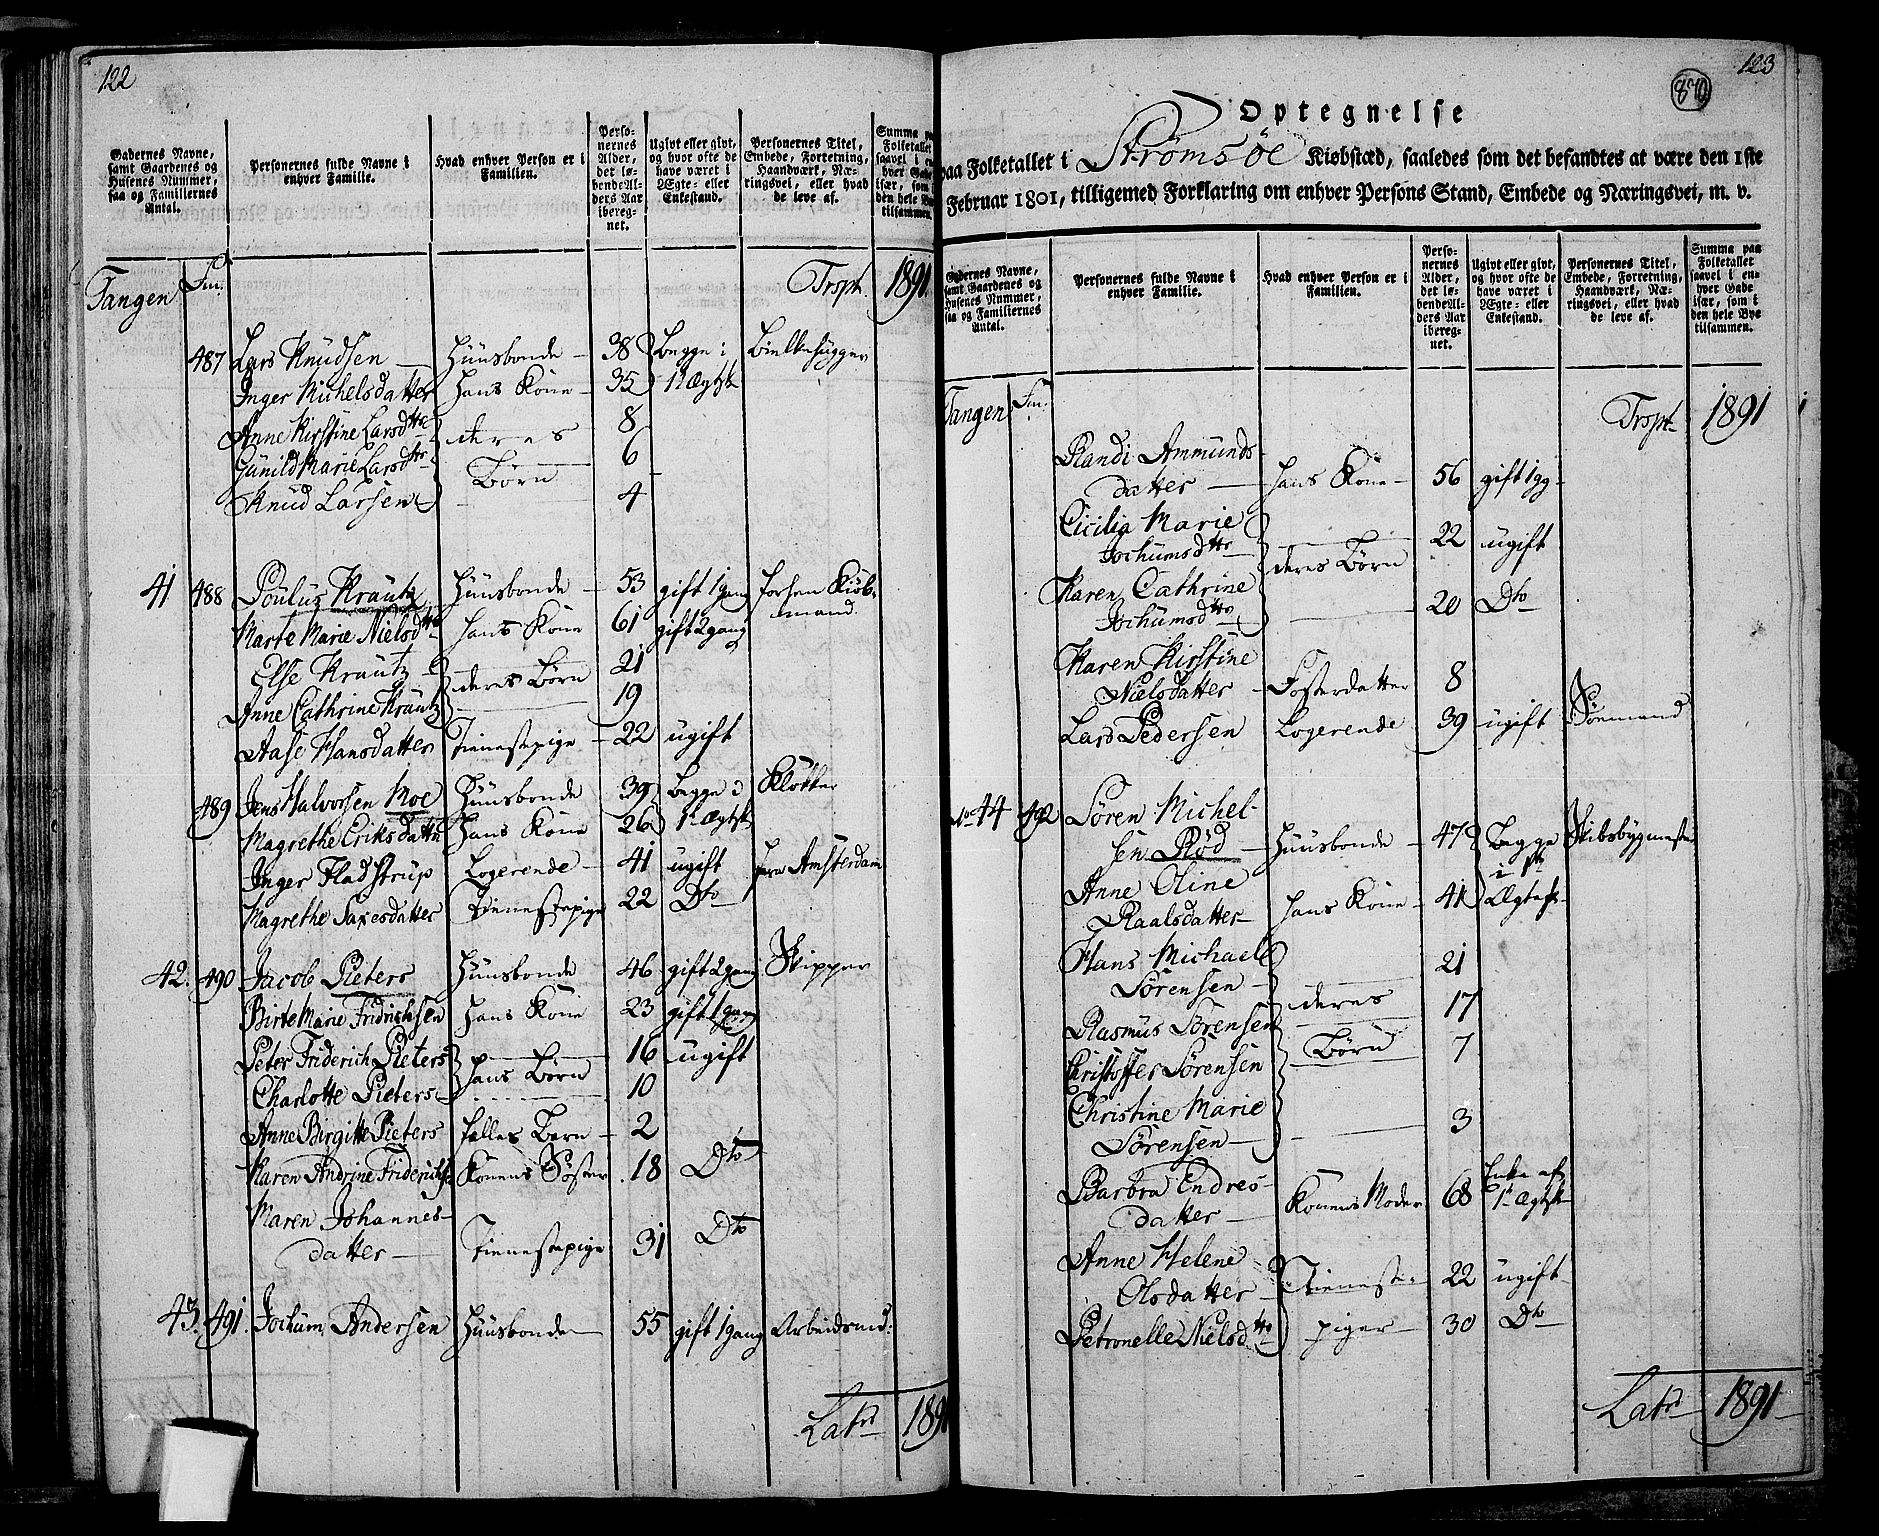 122
Gadernes Navne, samt Gaardenes og Husenes Nummer, saa og Familiernes Antal.
Personernes fulde Navne i enhver Familie.
Hvad enhver Person er i Familien.
Personernes Alder, det løbende Alders Aar iberegnet.
Ugivt eller givt, og hvor ofte de have været i Ægte- eller Enkestand.
Personernes Titel, Embede, Forretning, Haandværk, Næringsvei, eller hvad de leve af.
Tangen Fm. Trspt. 1891.
487 Lars Knudsen Huusbonde 38 Begge i Bielkehugger
Inger Michelsdatter hans Kone 35 1t Ægtsk
Anne Kirstine Larsdttr deres 8
Gunild Marie Larsdttr Børn 6
Knud Larsen 4
41 488 Poulus Krautz Huusbonde 53 gift 1 gang forhen Kiøb-
Marte Marie Nielsdttr hans Kone 61 gift 2 gang mand.
Else Krautz deres Børn 21
Anne Cathrine Krautz 19
Aase Hansdatter Tienestepige 22 ugift
489 Jens Halvorsen Moe Huusbonde 39 Begge i Klokker
Magrethe Eriksdattr hans Kone 26 1t Ægtsk
Inger Fladstrup Logerende 41 ugift fra Amsterdam
Magrethe Saxesdatter Tienestepige 22 Dto
42. 490 Jacob Pieters Huusbonde 46 gift 2 gang Skipper
Birte Marie Fridrichsen hans Kone 23 gift 1 gang
Peter Friderich Pieters hans Børn 16 ugift
Charlotte Pieters 10
Anne Birgitte Pieters fælles Barn 2
Karen Andrine Friderichs Konens Søster 18 Dto
Maren Johannes-
datter Tienestepige 31 Dto
43. 491. Jochum Andersen Huusbonde 55 gift 1 gang Arbeidsmd:
Latr 1891
123
870
Optegnelse
paa Folketallet i Strømsøe Kiøbstæd, saaledes som det befandtes at være den 1ste
Februar 1801, tilligemed Forklaring om enhver Persons Stand, Embede og Næringsvei, m. v.
Gadernes Navne, samt Gaardenes og Husenes Nummer, saa og Familiernes Antal.
Personernes fulde Navne i enhver Familie.
Hvad enhver Person er i Familien.
Personernes Alder, det løbende Alders Aar iberegnet.
Ugivt eller givt, og hvor ofte de have været i Ægte- eller Enkestand.
Personernes Titel, Embede, Forretning, Haandværk, Næringsvei, eller hvad de leve af.
Summa paa Folketallet saavel i enhver Gade især, som i den hele Bye tilsammen.
Tangen Fm. Trspt 1891
Randi Ammunds-
datter hans Kone 56 gift 1 gg
Cicilia Marie
Jochumsdttr deres Børn 22 ugift
Karen Cathrine
Jochumsdttr 20 Dto
Karen Kirstine
Nielsdatter Fosterdatter 8
Lars Pedersen Logerende 39 ugift Søemand
No 44 492 Søren Michel-
sen Rød Huusbonde 47 Begge Skibsbygmester
Anne Oline i 1t
Raalsdatter hans Kone 41 Ægtesk.
Hans Michael
Sørensen deres 21
Rasmus Sørensen Børn 17
Christoffer Sørensen 7
Christine Marie
Sørensen 3
Barbra Endres- Enke af
datter Konens Moder 68 1t Ægtsk
Anne Helene
Olsdatter Tieneste- 22 ugift
Petronelle Nielsdttr piger 30 Dto
Latr 1891